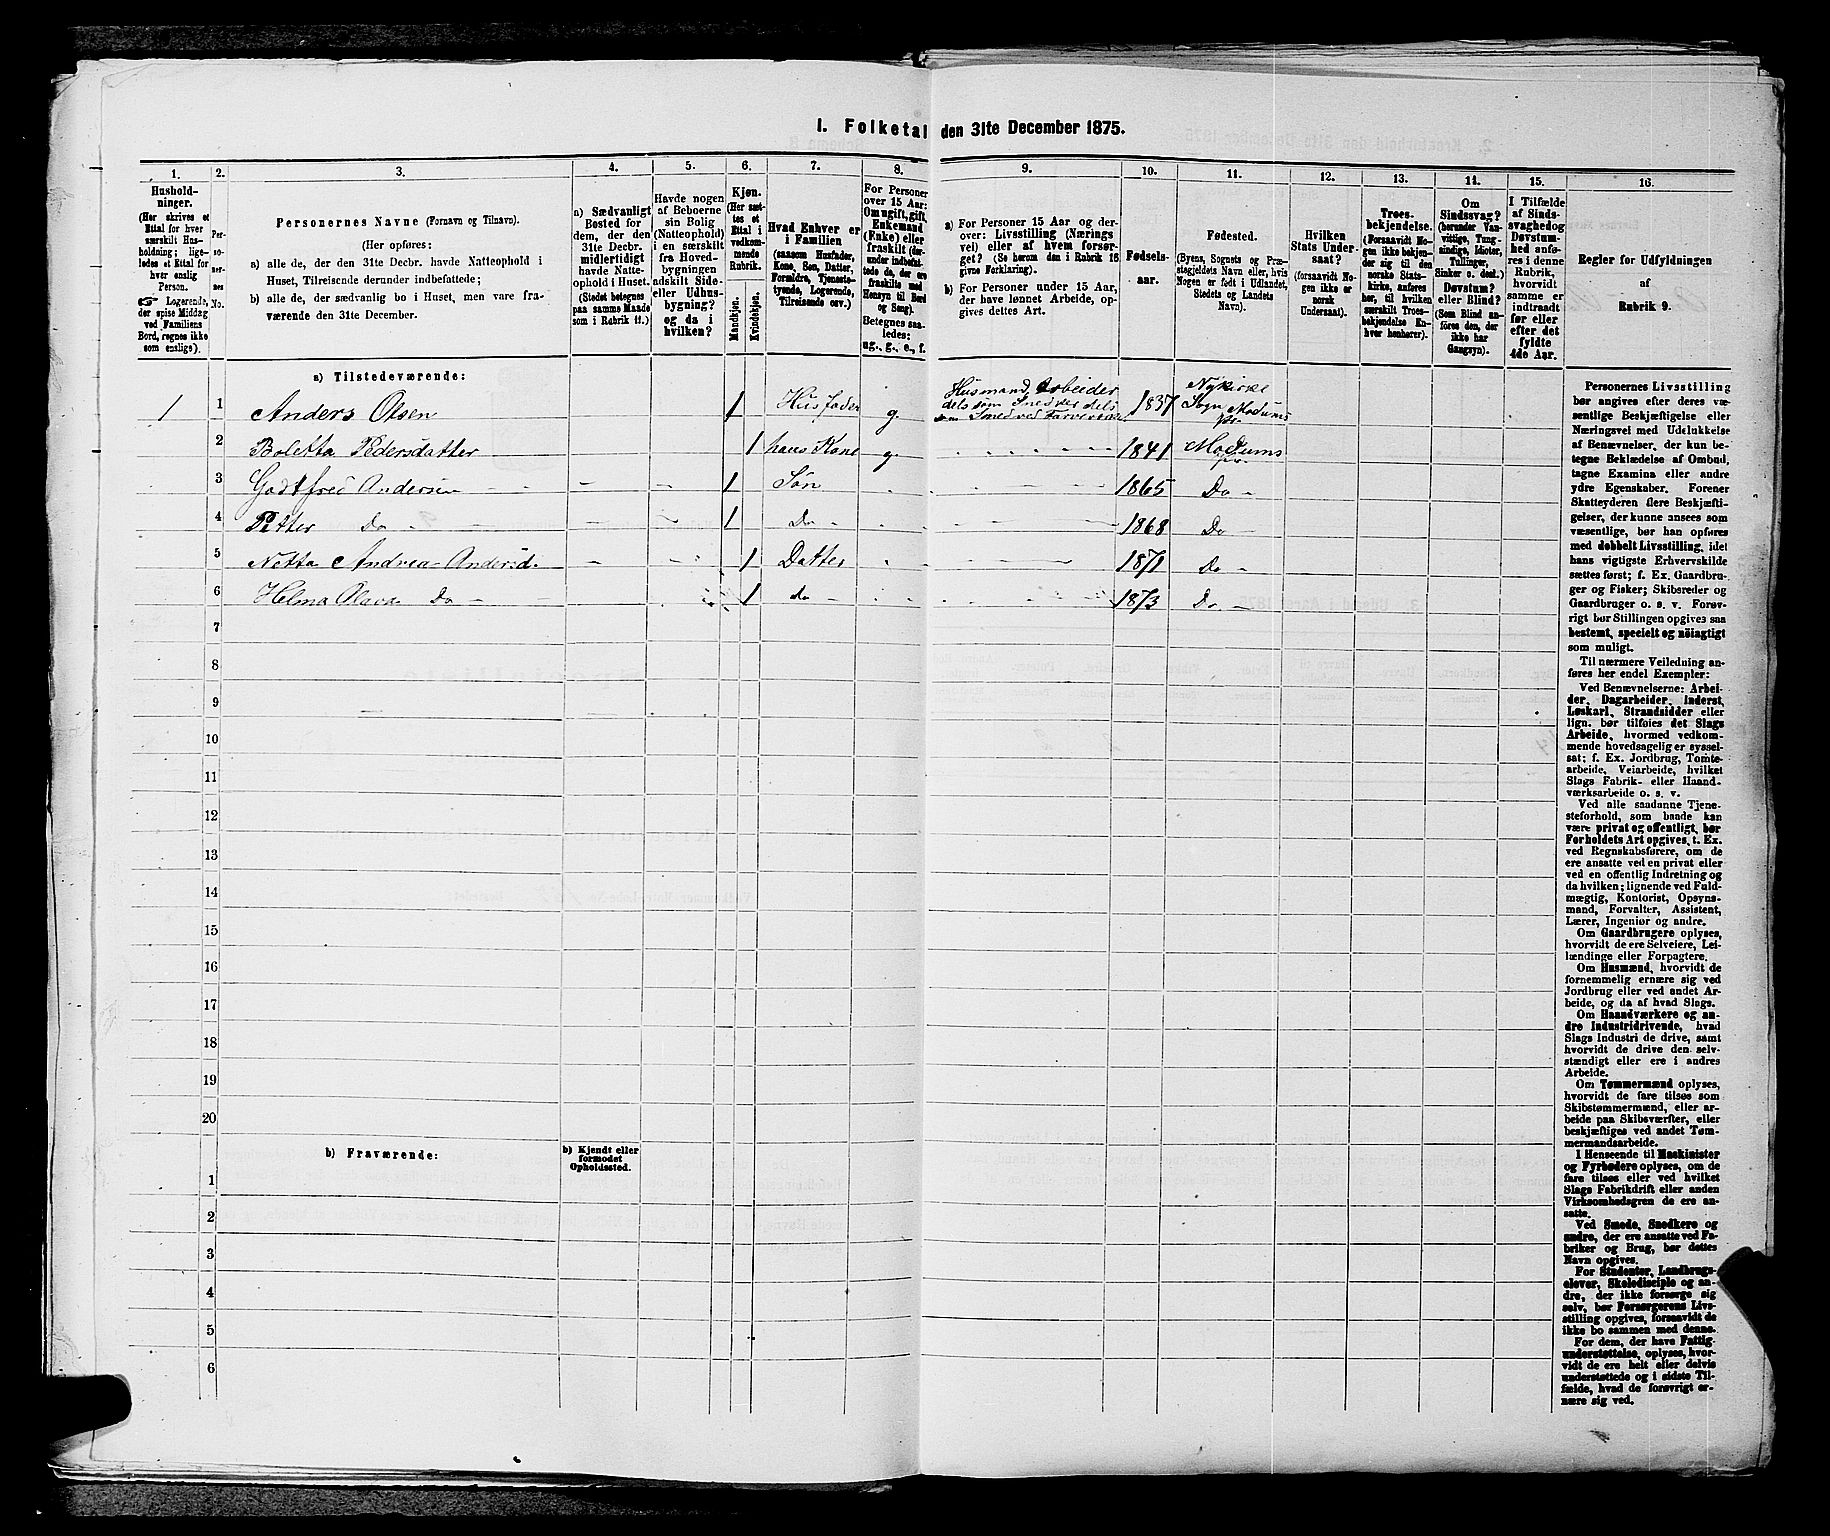 I. Folketal den 31te December 1875.
1. 2. 3. 4. 5. 6. 7. 8. 9. 10. 11. 12. 13. 14. 15. 16.
Hushold-
ninger.
(Her skrives et
Ettal for hver
særskilt Hus-
holdning; lige-
ledes et Ettal for
hver enslig
Person.
☞ Logerende,
der spise Middag
ved Familiens
Bord, regnes ikke
som enslige).
Per-
so-
ner-
nes
No.
Personernes Navne (Fornavn og Tilnavn).
(Her opføres:
a) alle de, der den 31te Decbr. havde Natteophold i
Huset, Tilreisende derunder indbefattede;
b) alle de, der sædvanlig bo i Huset, men vare fra-
værende den 31te December.
a) Sædvanligt
Bosted for
dem, der den
31te Decbr.
midlertidigt
havde Natte-
ophold i Huset.
(Stedet betegnes
paa samme Maade
som i Rubrik 11.)
Havde nogen
af Beboerne
sin Bolig
(Natteophold)
i en særskilt
fra Hoved-
bygningen
adskilt Side-
eller Udhus-
bygning?
og da i
hvilken?
Kjøn.
(Her sæt-
tes et
Ettal i
vedkom-
mende
Rubrik.
Mandkjøn.
Kvindekjøn.
Hvad Enhver er
i Familien
(saasom Husfader,
Kone, Søn, Datter,
Forældre, Tjeneste-
tyende, Logerende,
Tilreisende osv.)
For Personer
over 15 Aar:
Om ugift, gift,
Enkemand
(Enke) eller
fraskilt (der-
under indbefat-
tede de, der ere
fraskilte med
Hensyn til Bord
og Seng).
Betegnes saa-
ledes:
ug., g., e., f.
a) For Personer 15 Aar og der-
over: Livsstilling (Nærings
vei) eller af hvem forsør-
get? (Se herom den i Rubrik 16
givne Forklaring).
b) For Personer under 15 Aar,
der have lønnet Arbeide, op-
gives dettes Art.
Fødsels-
aar.
Fødested.
(Byens, Sognets og Præ-
stegjeldets Navn eller, hvis
Nogen er født i Udlandet,
Stedets og Landets
Navn).
Hvilken
Stats Under-
saat?
(forsaavidt No-
gen ikke er
norsk
Undersaat).
Troes-
bekjendelse.
(Forsaavidt No-
gen ikke bekjen-
der sig til den
norske Stats-
kirke, anføres
her, til hvilken
særskilt Troes-
bekjendelse En-
hver henhører).
Om
Sindssvag?
(herunder Van-
vittige, Tung-
sindige, Idioter,
Tullinger,
Sinker o. desl.)
Døvstum?
eller Blind?
(Som Blind an-
føres den, der
ikke har
Gangsyn).
I Tilfælde
af Sinds-
svaghed og
Døvstum-
hed anfø-
res i denne
Rubrik,
hvorvidt
samme er
indtraadt
før eller
efter det
fyldte
4de Aar.
Regler for Udfyldningen
af
Rubrik 9.
a) Tilstedeværende:
1 1 Anders Olsen 1 Husfader g. Husmand, Arbeider dels som Snedker dels som Smed ved Farveværket 1837 Nykirke Sogn Modums Pr.
2 Boletta Pedersdatter 1 hans Kone g. 1841 Modums Pr.
3 Godtfred Andersen 1 Søn 1865 Do
4 Petter Do 1 Do 1868 Do
5 Netta Andrea Andersd. 1 Datter 1871 Do
6 Helma Olava Do 1 do 1873 Do
7
8
9
10
11
12
13
14
15
16
17
18
19
20
b) Fraværende:
b) Kjendt eller
formodet
Opholdssted.
1
2
3
4
5
6
Personernes Livsstilling
bør angives efter deres væ-
sentlige Beskjæftigelse eller
Næringsvei med Udelukkelse
af Benævnelser, der kun be-
tegne Beklædelse af Ombud,
tagne Examina eller andre
ydre Egenskaber. Forener
Skatteyderen flere Beskjæfti-
gelser, der kunne ansees som
væsentlige, bør han opføres
med dobbelt Livsstilling, idet
hans vigtigste Erhvervskilde
sættes først; f. Ex. Gaardbru-
ger og Fisker; Skibsreder og
Gaardbruger o. s. v. Forøv-
rigt bør Stillingen opgives saa
bestemt, specielt og nøiagtigt
som muligt.
Til nærmere Veiledning an-
føres her endel Exempler:
Ved Benævnelserne: Arbei-
der, Dagarbeider, Inderst,
Løskarl, Strandsidder eller
lign. bør tilføies det Slags
Arbeide, hvormed vedkom-
mende hovedsagelig er syssel-
sat; f. Ex. Jordbrug, Tomte-
arbeide, Veiarbeide, hvilket
Slags Fabrik- eller Haand-
værksarbeide o. s. v.
Ved alle saadanne Tjene-
steforhold, som baade kan
være privat og offentligt, bør
Forholdets Art opgives, t. Ex.
ved Regnskabsførere, om de
ere ansatte ved en privat eller
ved en offentlig Indretning og
da hvilken; lignende ved Fuld-
mægtig, Kontorist, Opsyns-
mand, Forvalter, Assistent,
Lærer, Ingeniør og andre.
Om Gaardbrugere oplyses,
hvorvidt de ere Selveiere, Lei-
lændinge eller Forpagtere.
Om Husmænd, hvorvidt de
fornemmelig ernære sig ved
Jordbrug eller ved andet Ar-
beide, og da af hvad Slags.
Om Haandværkere og an-
dre Industridrivende, hvad
Slags Industri de drive, samt
hvorvidt de drive den selv-
stændigt eller ere i andres
Arbeide.
Om Tømmermænd oplyses,
hvorvidt de fare tilsøs som
Skibstømmermænd, eller ar-
beide paa Skibsværfter, eller
beskjæftiges ved andet Tøm-
mermandsarbeide.
I Henseende til Maskinister
og Fyrbødere oplyses, om de
fare tilsøs eller ved hvilket
Slags Fabrikdrift eller anden
Virksomhedsgren de ere an-
satte.
Ved Smede, Snedkere og
andre, der ere ansatte ved Fa-
briker og Brug, bør dettes
Navn opgives.
For Studenter, Landbrugs-
elever, Skoledisciple og an-
dre, der ikke forsørge sig
selv, bør Forsørgerens Livs-
stilling opgives, forsaavidt de
ikke bo sammen med denne.
For dem, der have Fattig-
understøttelse, oplyses, hvor-
vidt de ere helt eller delvis
understøttede og i sidste Til-
fælde, hvad de forøvrigt er-
nære sig ved.